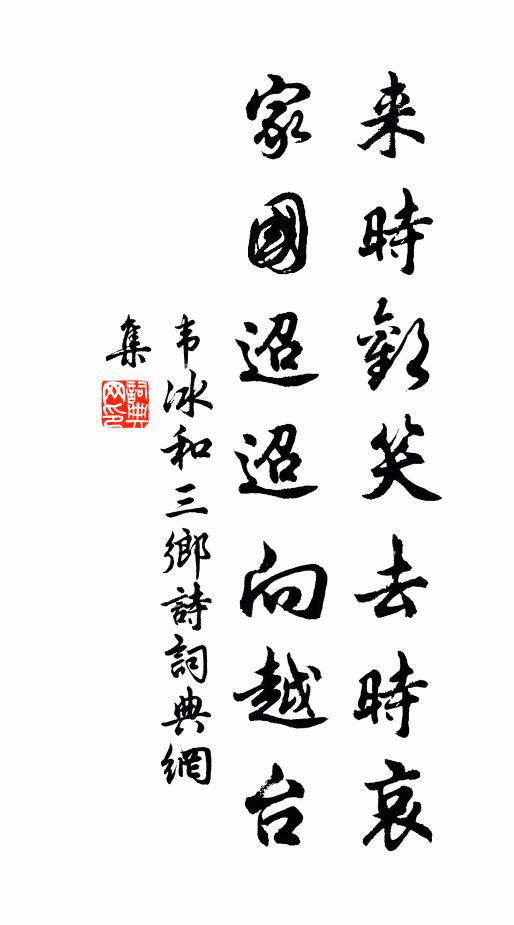 来時歡笑去時哀
家國迢迢向越台
韦冰和三鄉詩詞典網
集
詞典网印